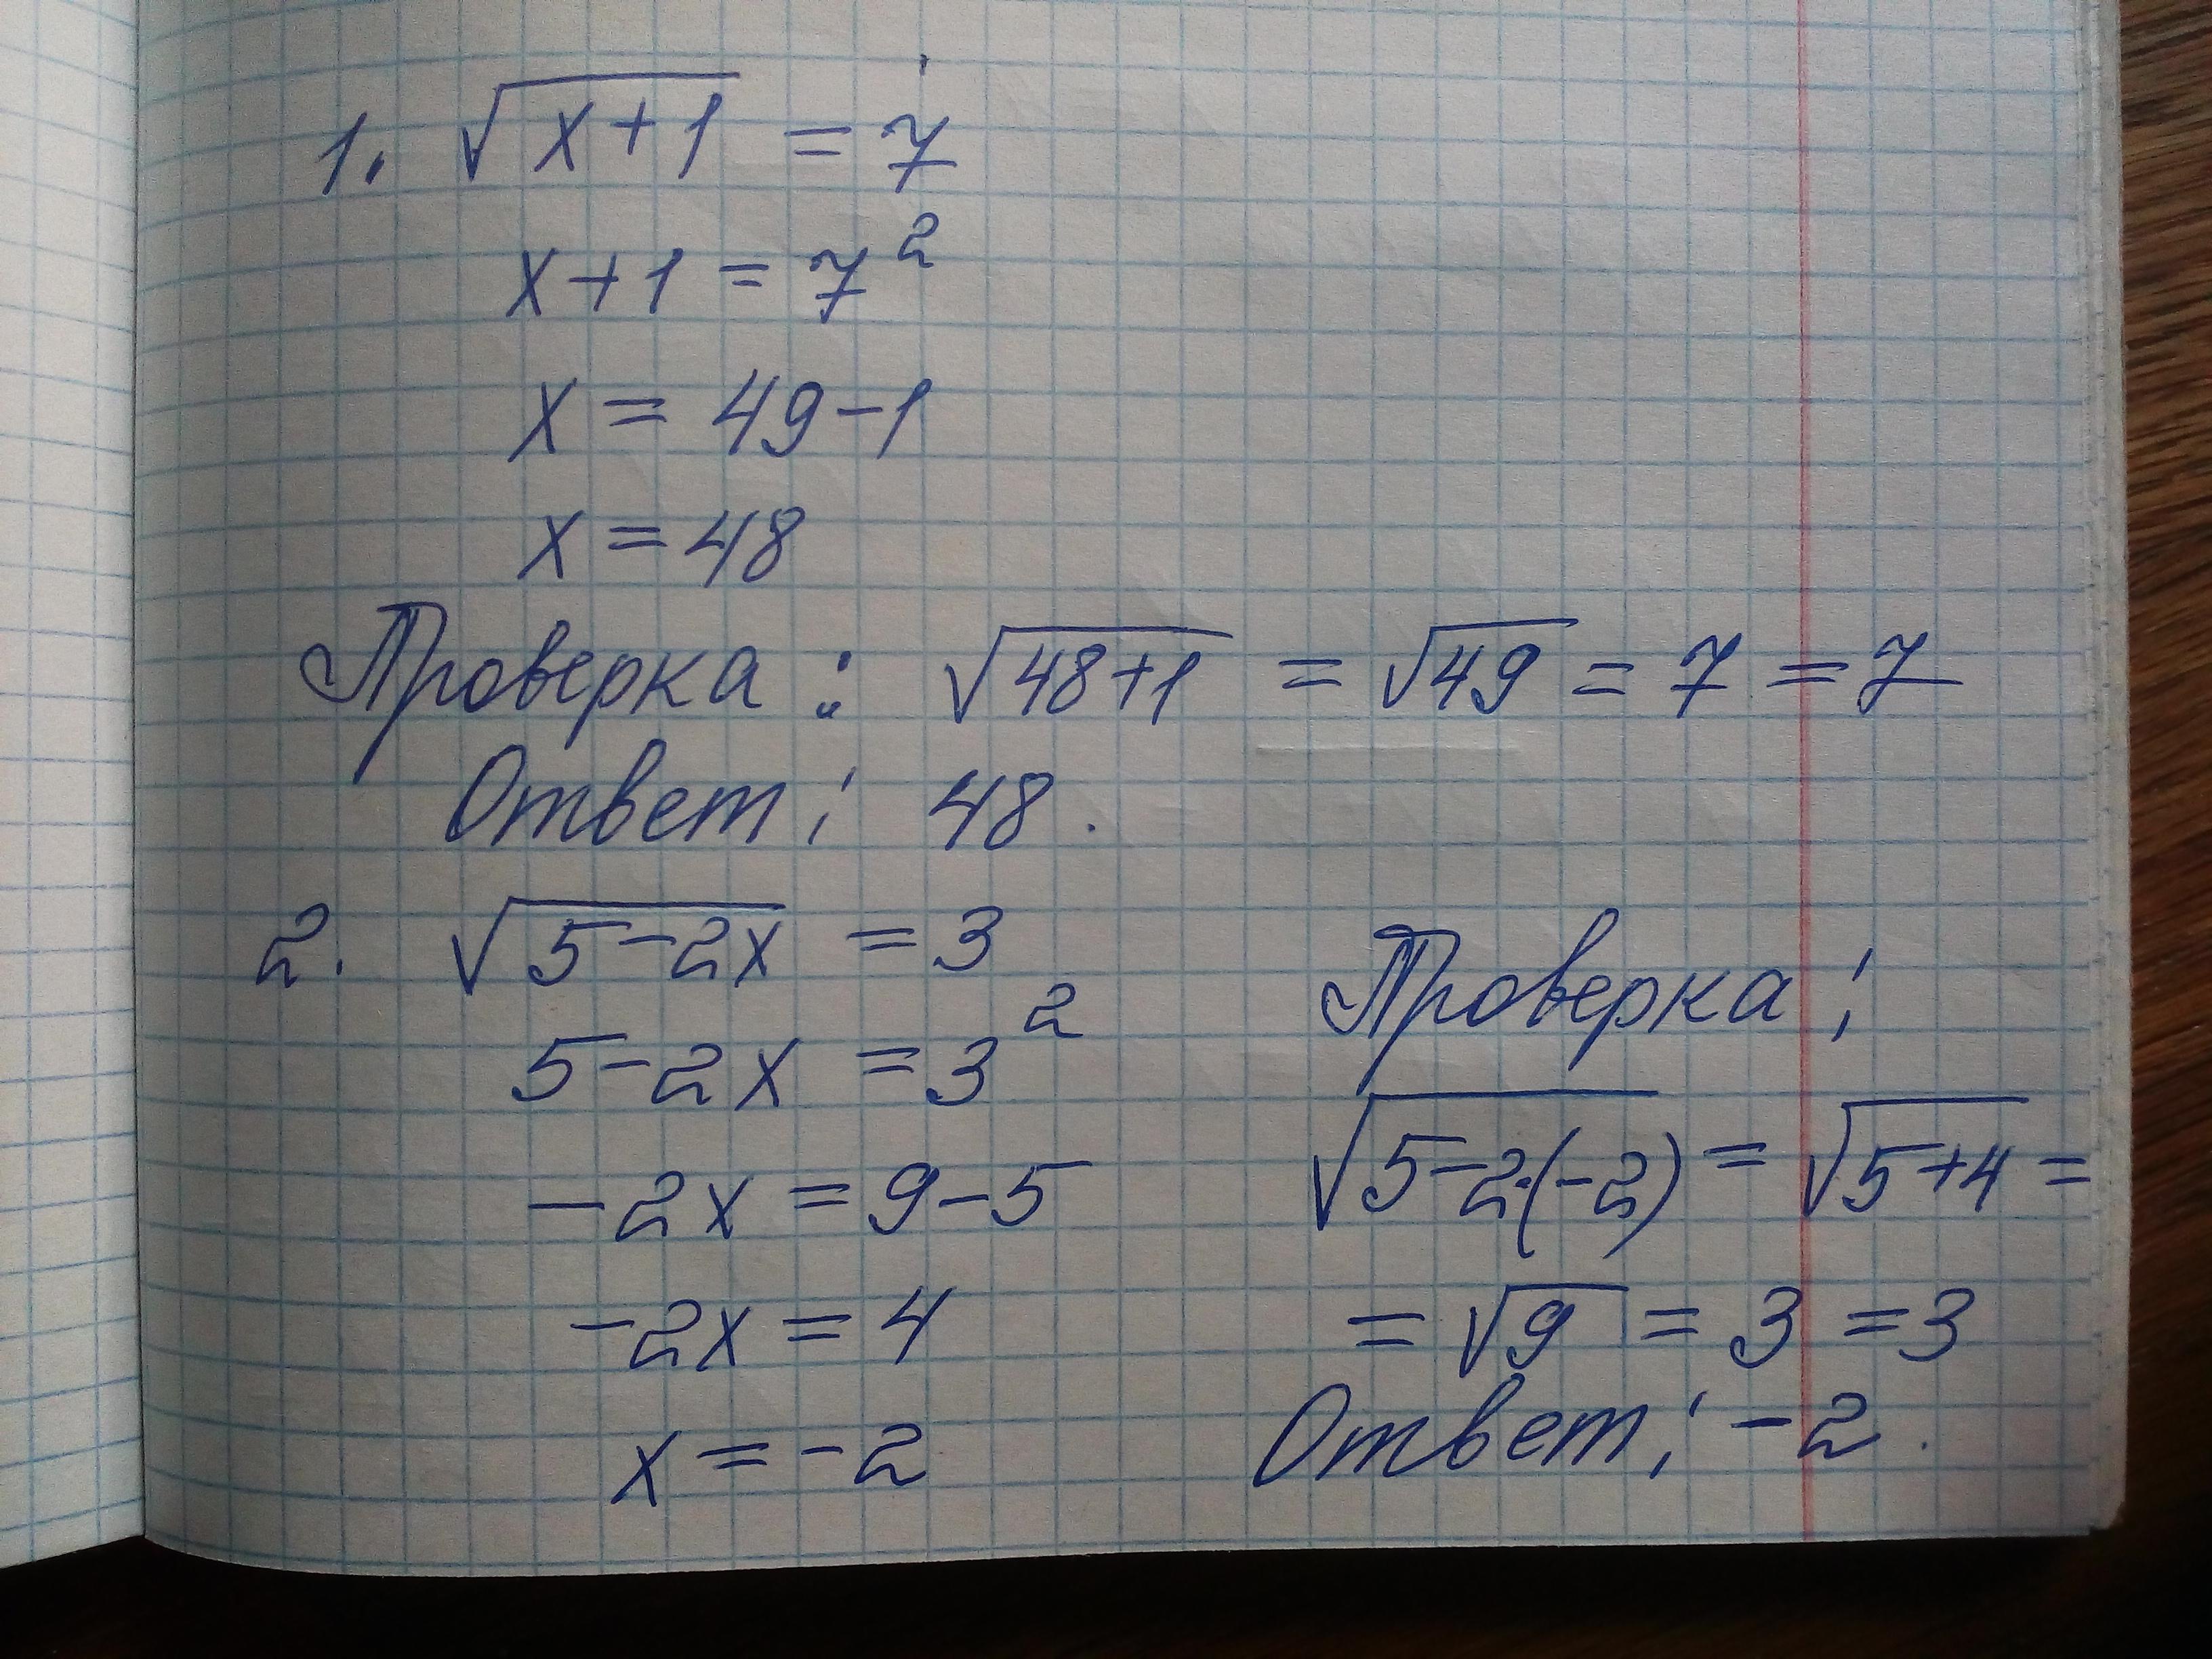 1. √(x+1) = 7
x+1 = 7²
x = 49-1
x = 48
Проверка: √(48+1) = √49 = 7 = 7
Ответ: 48.
2. √(5-2x) = 3
5-2x = 3²
-2x = 9-5
-2x = 4
x = -2
Проверка:
√(5-2·(-2)) = √(5+4) =
= √9 = 3 = 3
Ответ: -2.